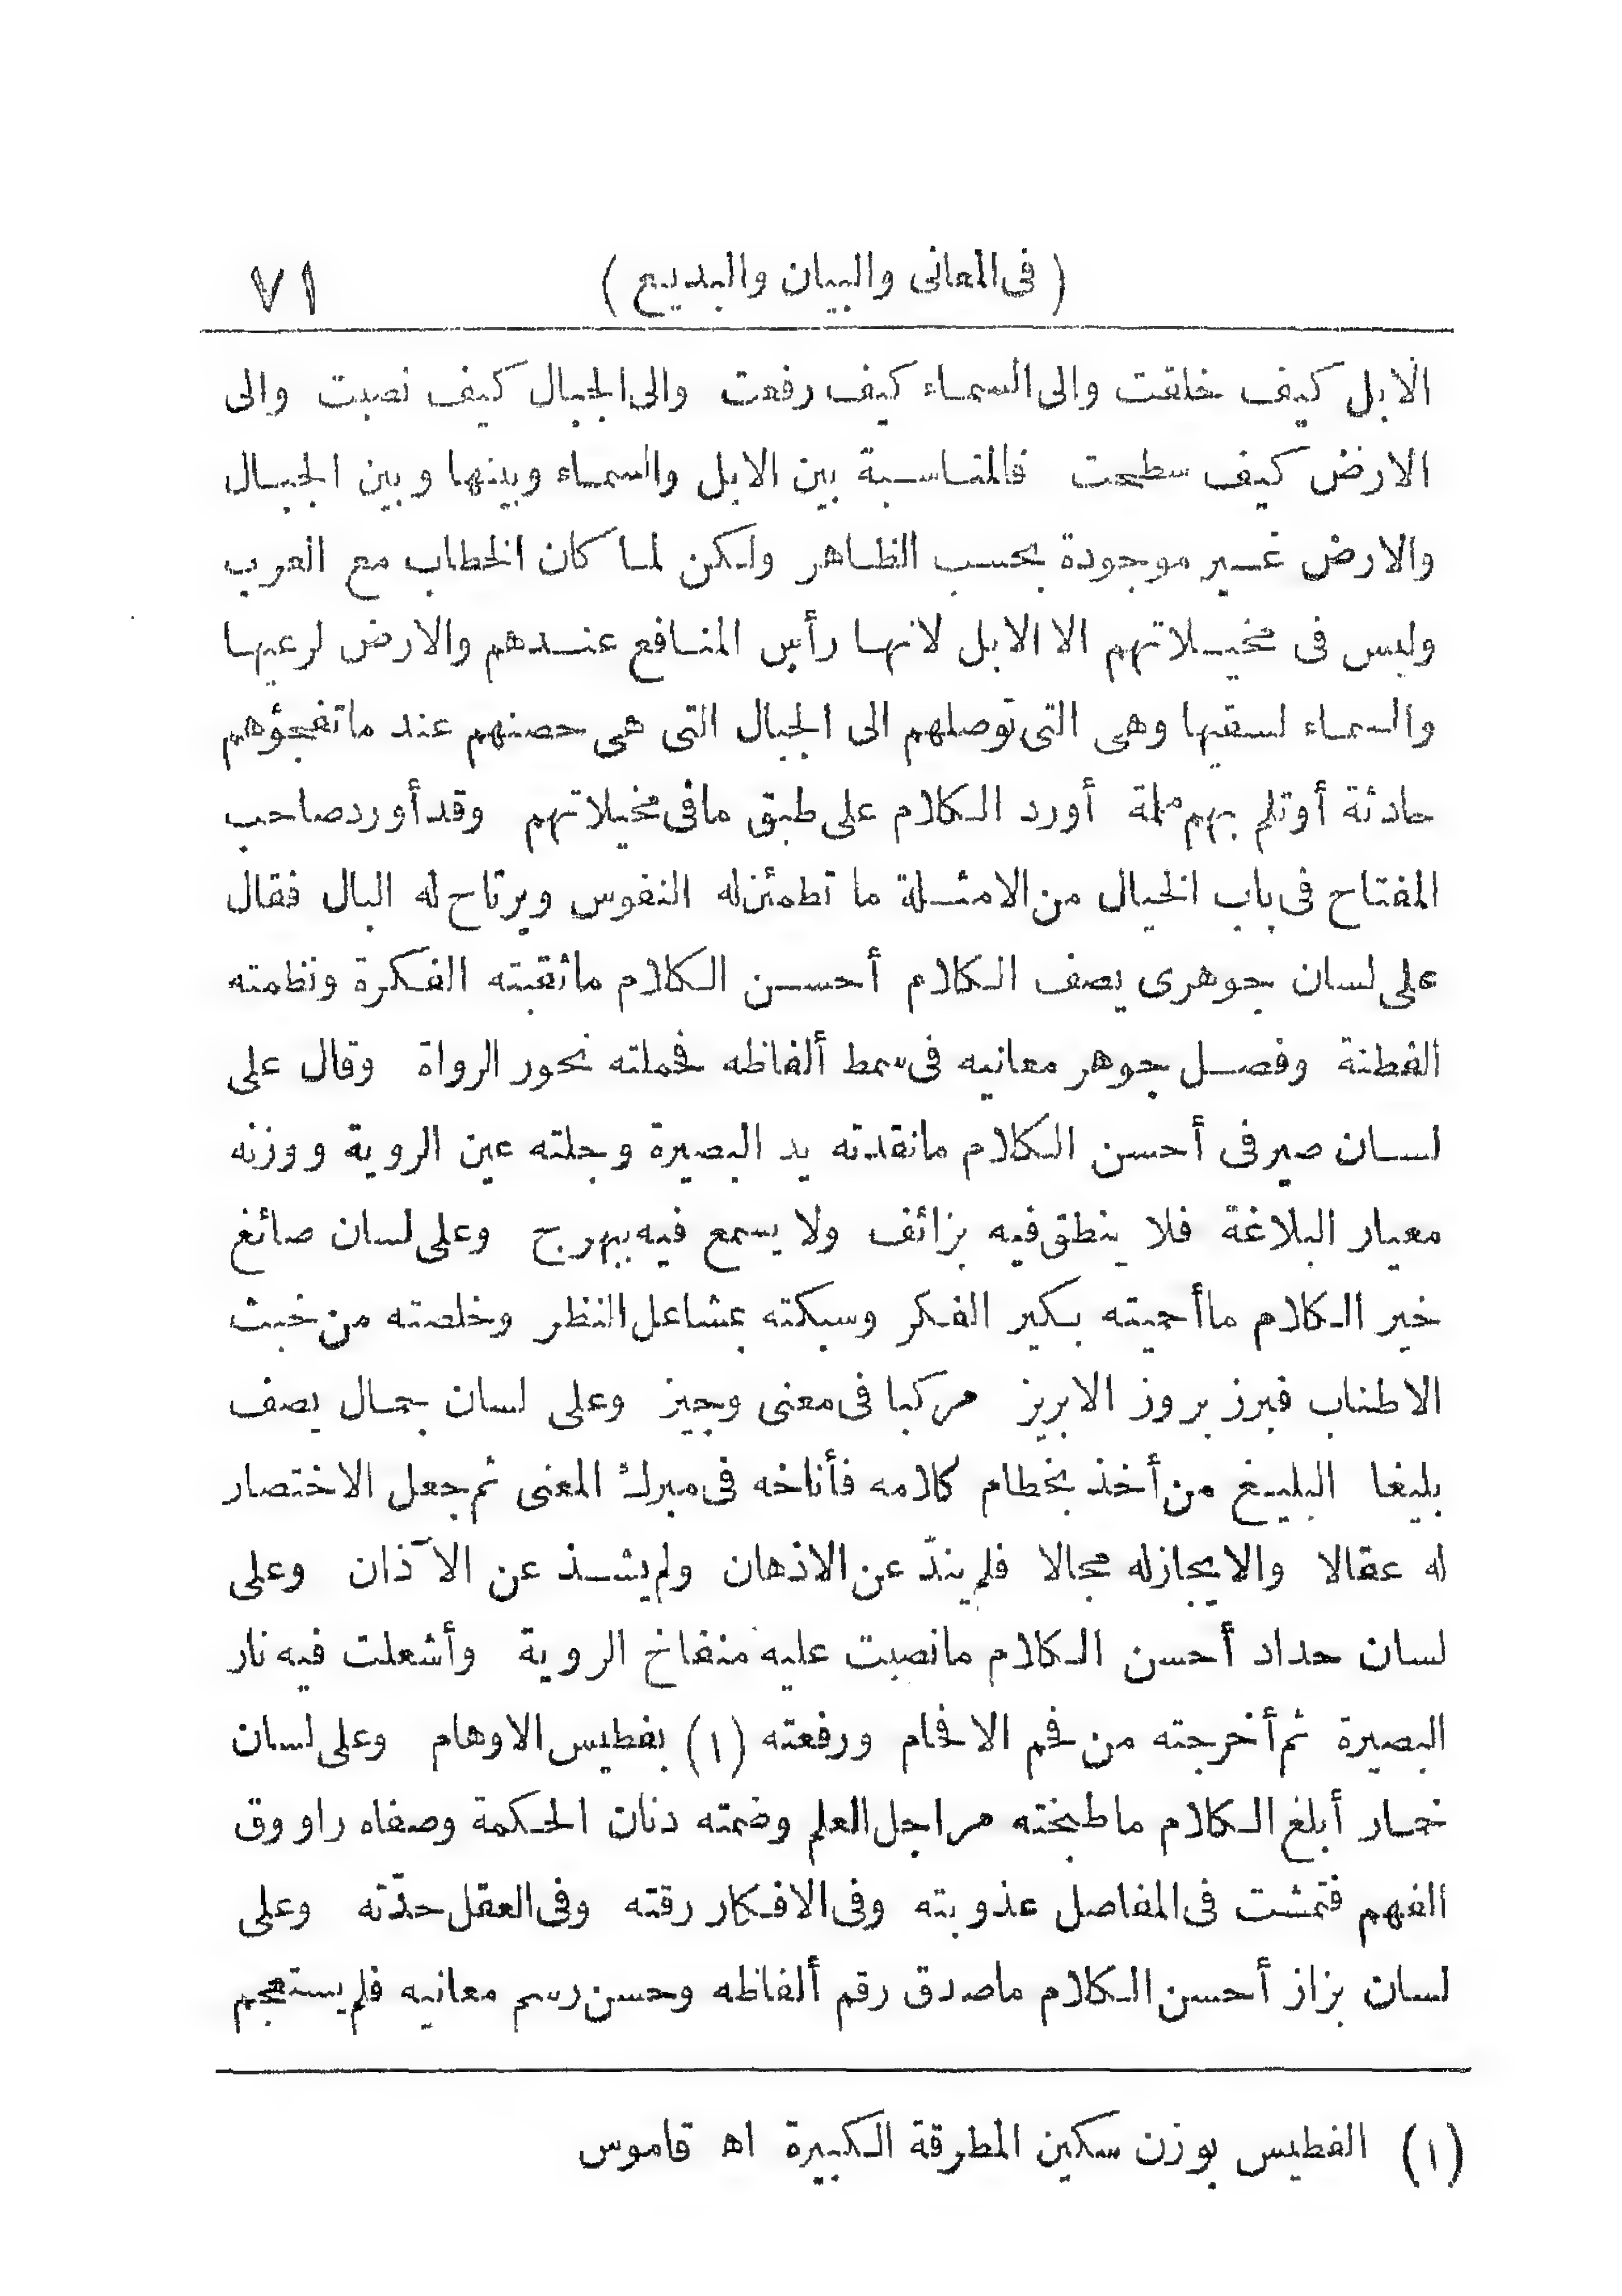 ( فى المعانى والبيان والبديع ) ٧١
الابل كيف خلقت والى السماء كيف رفعت والى الجبال كيف نصبت والى
الارض كيف سطحت فالمناسبة بين الابل والسماء وبينها وبين الجبال
والارض غير موجودة بحسب الظاهر ولكن لما كان الخطاب مع العرب
وليس فى مخيلاتهم الا الابل لانها رأس المنافع عندهم والارض لرعيها
والسماء لسقيها وهى التى توصلهم الى الجبال التى هى حصنهم عند ما تفجؤهم
حادثة أو تلم بهم ملمة أورد الكلام على طبق ما فى مخيلاتهم وقد أورد صاحب
المفتاح فى باب الخيال من الامثلة ما تطمئن له النفوس ويرتاح له البال فقال
على لسان جوهرى يصف الكلام أحسن الكلام ما ثقبته الفكرة ونظمته
الفطنة وفصل جوهر معانيه فى سمط ألفاظه فحملته نحور الرواة وقال على
لسان صيرفى أحسن الكلام ما نقدته يد البصيرة وجلته عين الروية ووزنه
معيار البلاغة فلا ينطق فيه بزائف ولا يسمع فيه ببهرج وعلى لسان صائغ
خير الكلام ما أحميته بكير الفكر وسبكته بمشاعل النظر وخلصته من خبث
الاطناب فبرز بروز الابريز مركبا فى معنى وجيز وعلى لسان جمال يصف
بليغا البليغ من أخذ بخطام كلامه فأناخه فى مبرك المعنى ثم جعل الاختصار
له عقالا والايجاز له مجالا فلم يندّ عن الاذهان ولم يشذ عن الآذان وعلى
لسان حداد أحسن الكلام ما نصبت عليه منفاخ الروية وأشعلت فيه نار
البصيرة ثم أخرجته من فحم الافحام ورفعته (١) بفطيس الاوهام وعلى لسان
خمار أبلغ الكلام ما طبخته مراجل العلم وضمته دنان الحكمة وصفاه راووق
الفهم فتمشت فى المفاصل عذوبته وفى الافكار رقته وفى العقل حدّته وعلى
لسان بزاز أحسن الكلام ما صدق رقم ألفاظه وحسن رسم معانيه فلم يستعجم
(١) الفطيس بوزن سكين المطرقة الكبيرة اه قاموس